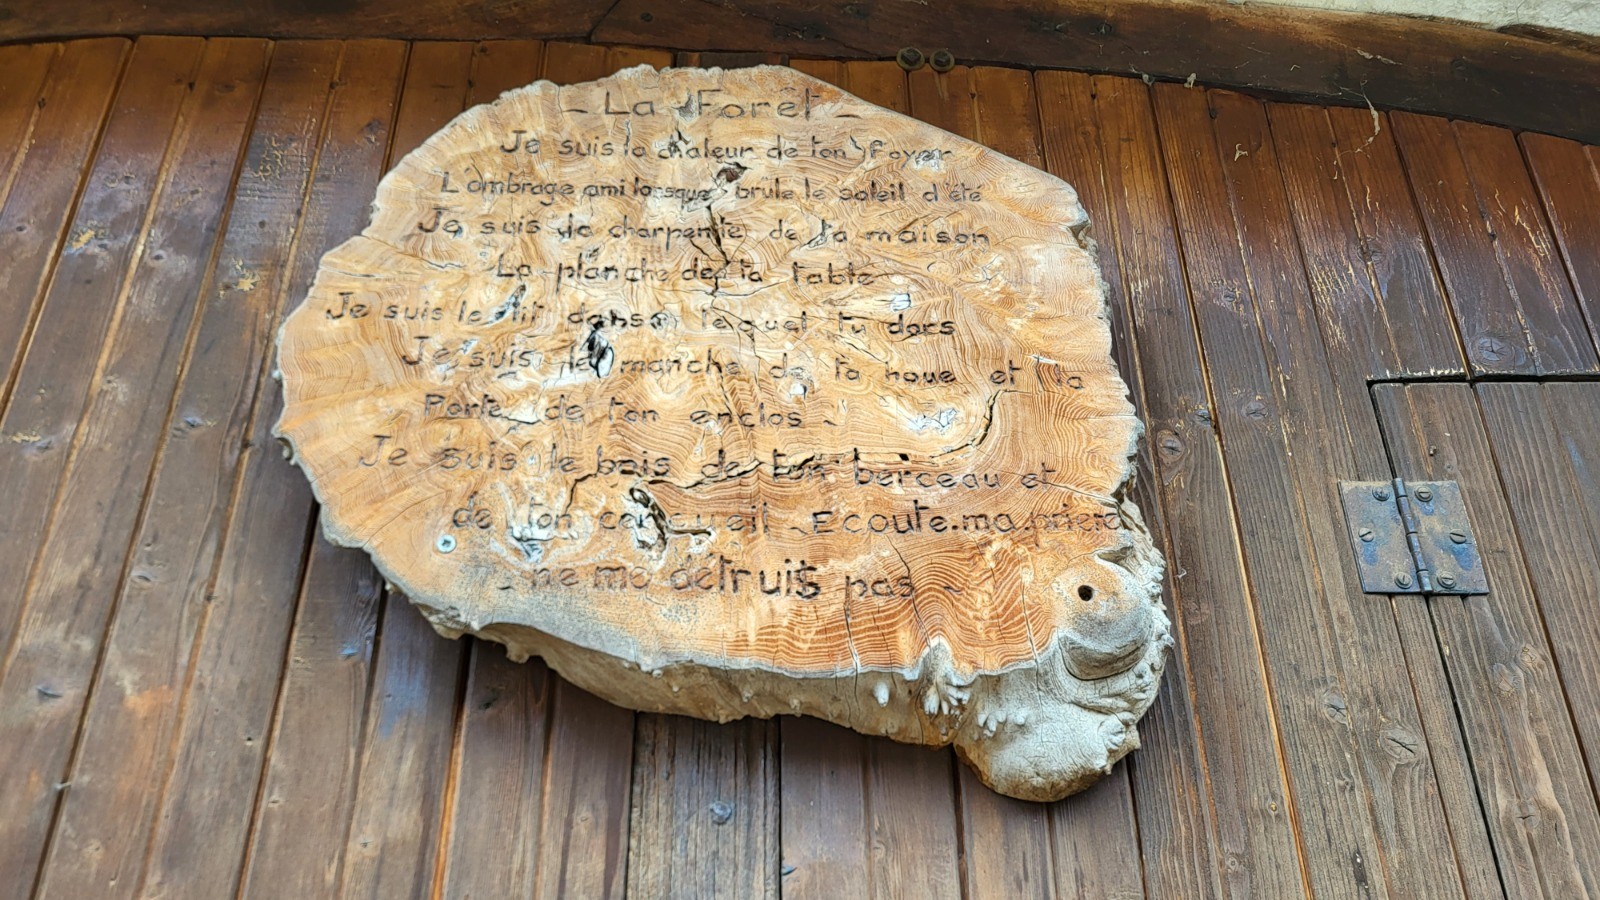 - La Forêt -
Je suis la chaleur de ton foyer
L'ombrage ami lorsque brûle le soleil d'été
Je suis la charpente de ta maison
La planche de ta table
Je suis le lit dans lequel tu dors
Je suis le manche de ta houe et la
Porte de ton enclos -
Je suis le bois de ton berceau et
de ton cercueil - Ecoute.ma.prière
- ne me détruis pas -